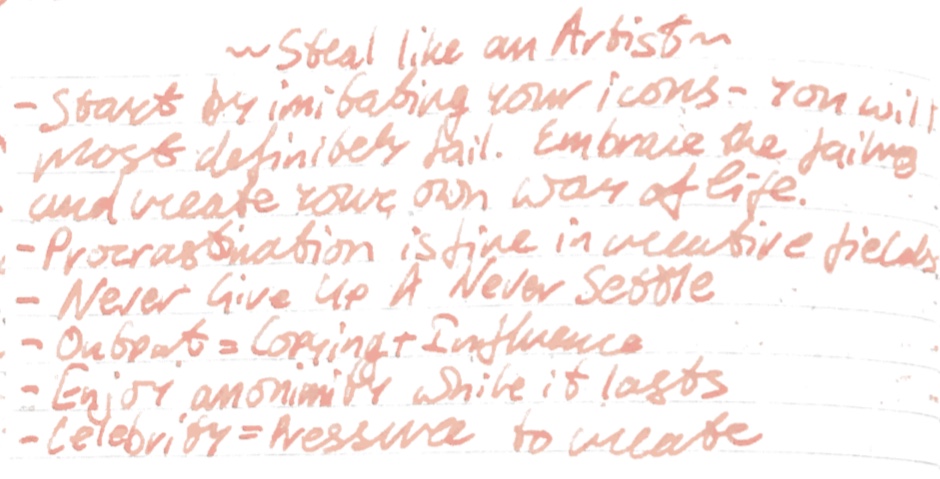 ~Steal like an Artist~
- Start by imitating your icons - You will
most definitely fail. Embrace the failing
and create your own way of life.
- Procrastination is fine in creative fields
- Never Give Up A Never Settle
- Output = Copying + Influence
- Enjoy anonimity while it lasts
- Celebrity = Pressure to create